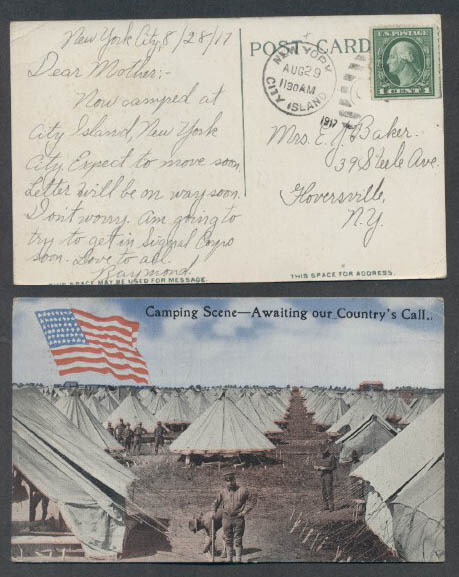 New York City, 8/28/17
Dear Mother:-
Now camped at
City Island, New York
City. Expect to move soon.
Letter will be on way soon.
Don't worry. Am going to
try to get in Signal Corps
soon. Love to all.
Raymond.
THIS SPACE MAY BE USED FOR MESSAGE.
POST CARD
NEW YORK
AUG 29
11 30 AM
1917
CITY ISLAND
U.S. POSTAGE
1 CENT 1
Mrs. E. J. Baker.
39 Steele Ave.
Gloversville,
N.Y.
THIS SPACE FOR ADDRESS.
Camping Scene—Awaiting our Country's Call.